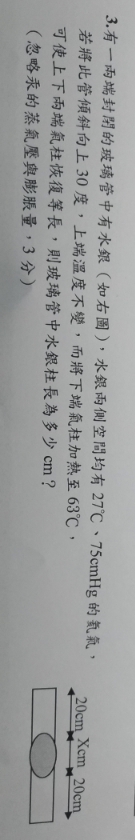 3.有一兩端封閉的玻璃管中有水銀（如右圖），水銀兩側空間均有 27℃、75cmHg 的氦氣，
若將此管傾斜向上 30 度，上端溫度不變，而將下端氣柱加熱至 63℃，
可使上下兩端氣柱恢復等長，則玻璃管中水銀柱長為多少 cm？
（忽略汞的蒸氣壓與膨脹量，3 分）
20cm Xcm 20cm